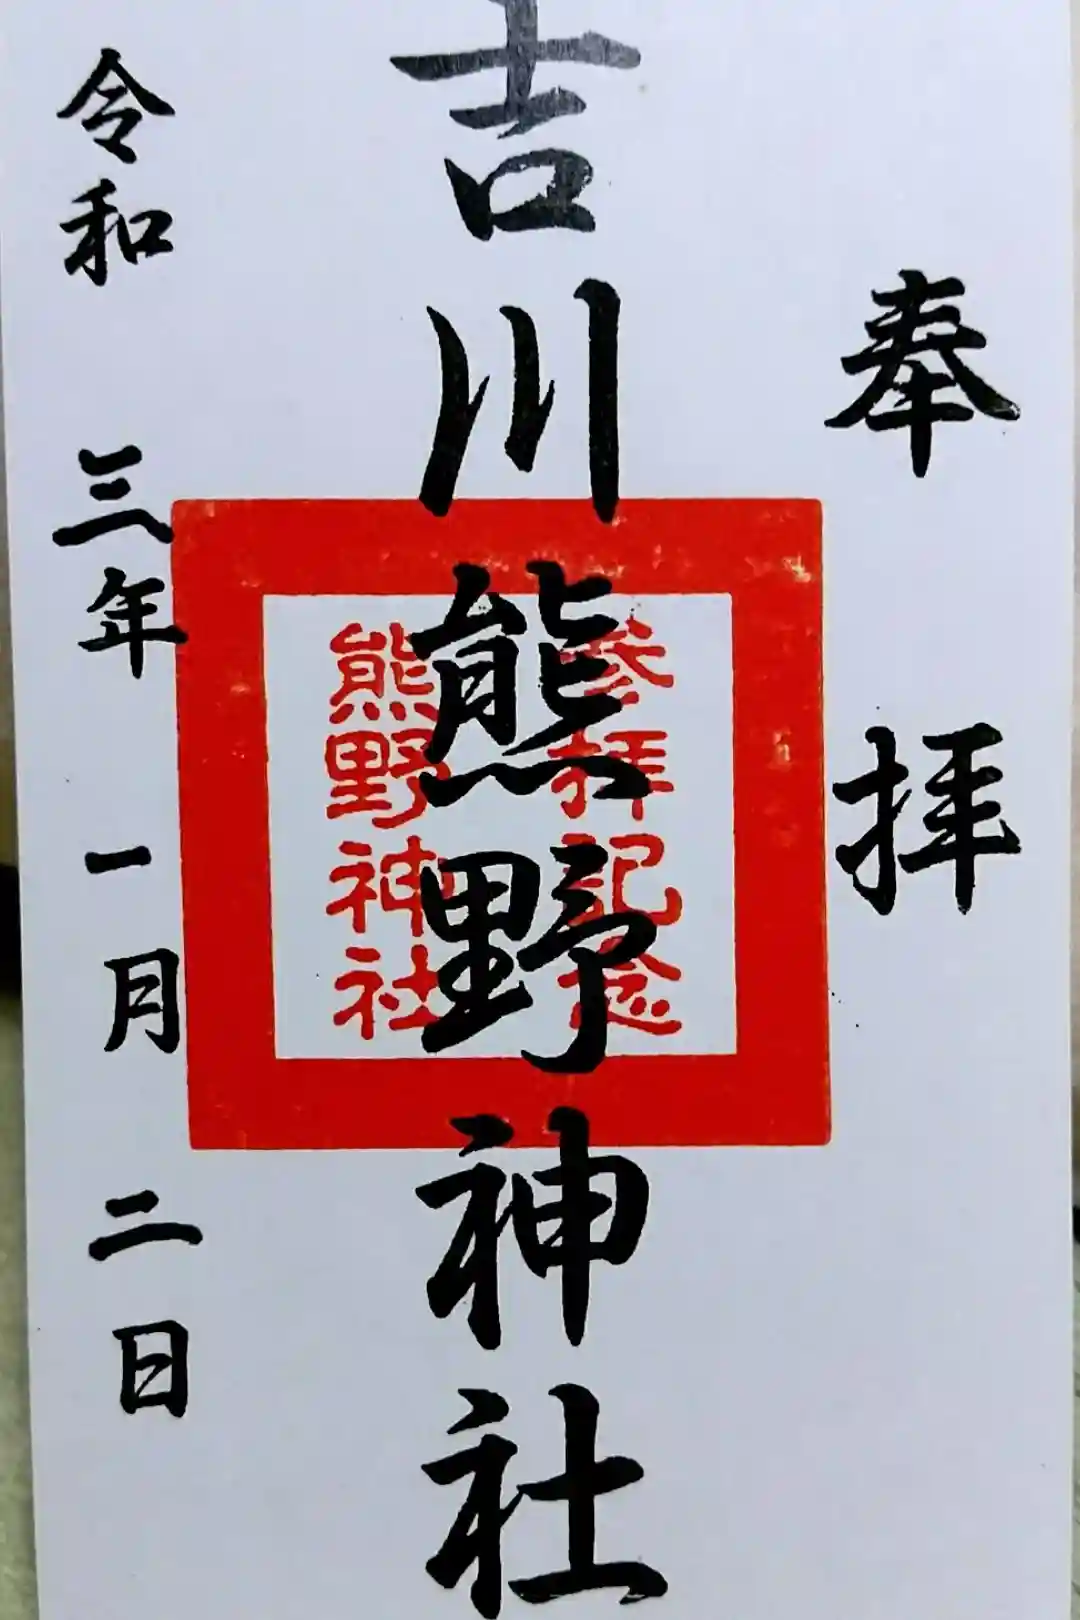 奉拝
吉川熊野神社
参拝記念
熊野神社
令和三年一月二日